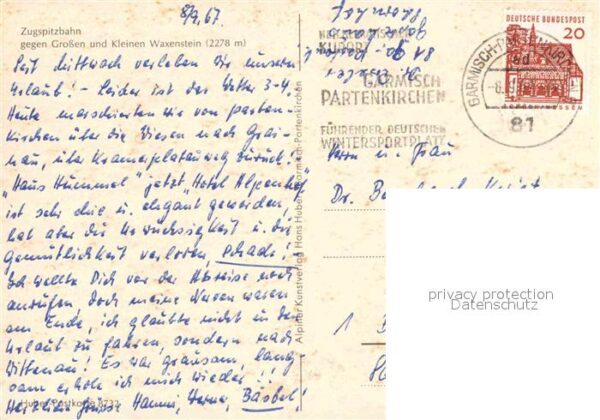 8/9.67.
Zugspitzbahn
gegen Großen und Kleinen Waxenstein (2278 m)
Seit Mittwoch verleben wir unseren
Urlaub! - Leider ist das Wetter 3-4.
Heute marschierten wir von Parten-
kirchen über die Wiesen nach Grai-
nau, über Kramerplateauweg zurück!
"Haus Hummel" jetzt "Hotel Alpenhof"
ist sehr chic u. elegant geworden,
hat aber die Urwüchsigkeit u. die
Gemütlichkeit verloren, schade!
Ich wollte Dich vor der Abreise noch
anrufen doch meine Nerven waren
am Ende, ich glaubte nicht in den
Urlaub zu fahren, sondern nach
Wittenau! Es war grausam, lang-
sam erhole ich mich wieder!!!
Herzliche Grüsse Hanni, Bärbel!
Huber-Postkarte 8732
Alpiner Kunstverlag Hans Huber, Garmisch-Partenkirchen
KURORT
GARMISCH
PARTENKIRCHEN
FÜHRENDER DEUTSCHER
WINTERSPORTPLATZ
GARMISCH-PARTENKIRCHEN
81
DEUTSCHE BUNDESPOST
20
LORSCH/HESSEN
Herrn u. Frau
Dr.
privacy protection
Datenschutz
1